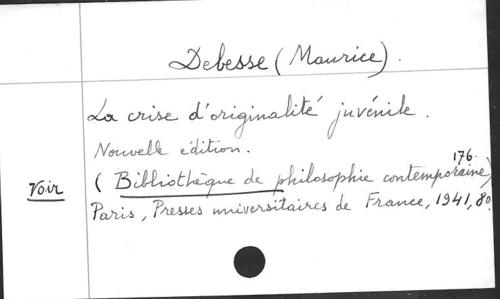 Debesse (Maurice).
La crise d'originalité juvénile.
Nouvelle édition.
176.
Voir
(Bibliothèque de philosophie contemporaine)
Paris, Presses universitaires de France, 1941, 80.